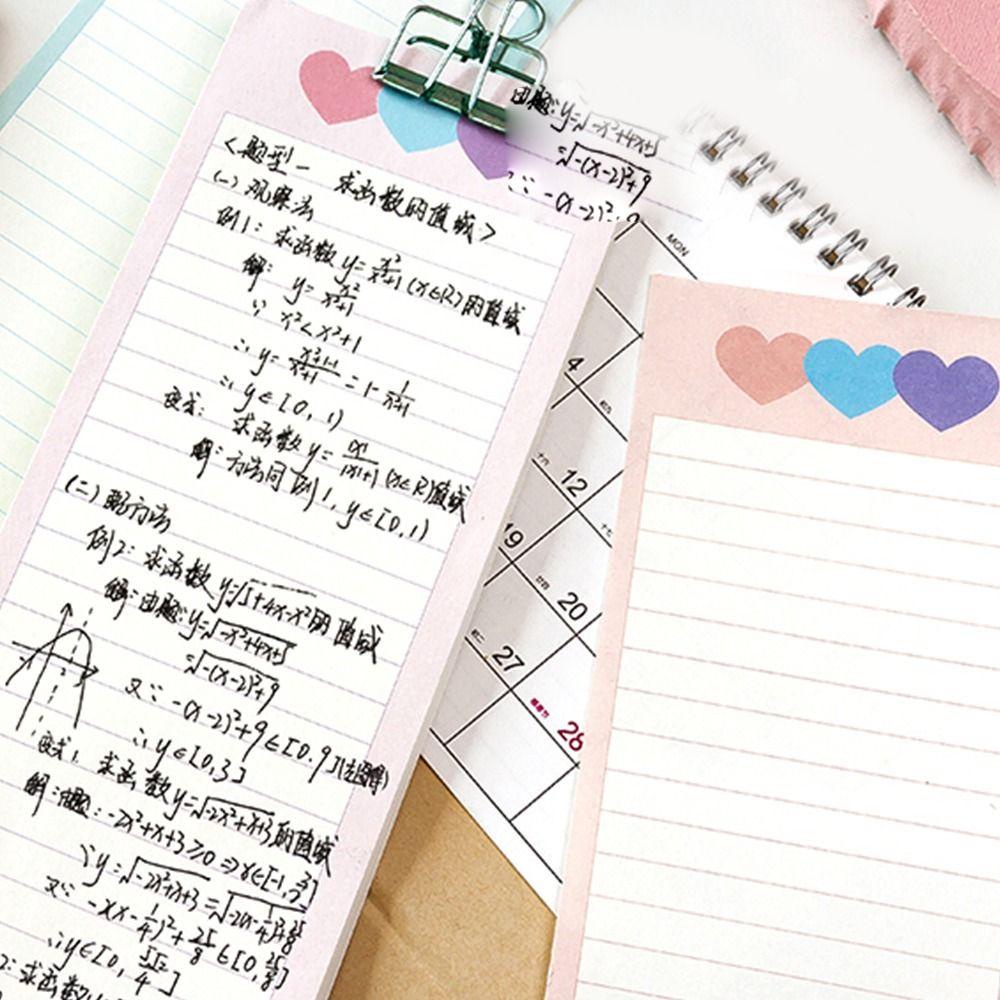 <题型一 求函数的值域>
(一)观察法
例1: 求函数 y=x²/x²+1 (x∈R)的值域
解: y=x²/x²+1
∵ x²<x²+1
∴ y=x²+1-1/x²+1=1-1/x²+1
∴ y∈[0,1)
变式: 求函数 y=|x|/|x|+1 (x∈R)值域
解: 方法同例1, y∈[0,1)
(二)配方法
例2: 求函数 y=√5+4x-x² 的值域
解: 由题: y=√-x²+4x+5
=√-(x-2)²+9
又∵ -(x-2)²+9∈[0,9]
∴ y∈[0,3]
变式1: 求函数 y=√-2x²+x+3 的值域
解: 由题: -2x²+x+3≥0⇒x∈[-1,3/2]
∵ y=√-2x²+x+3=√-2(x-1/4)²+25/8
又∵ -2(x-1/4)²+25/8∈[0,25/8]
∴ y∈[0,5√2/4]
2: 求函数
由题: y=√-x²+4x+5
=√-(x-2)²+9
∵ -(x-2)²+9
MON
4
十六
12
十七
19
20
廿四
27
初二
28